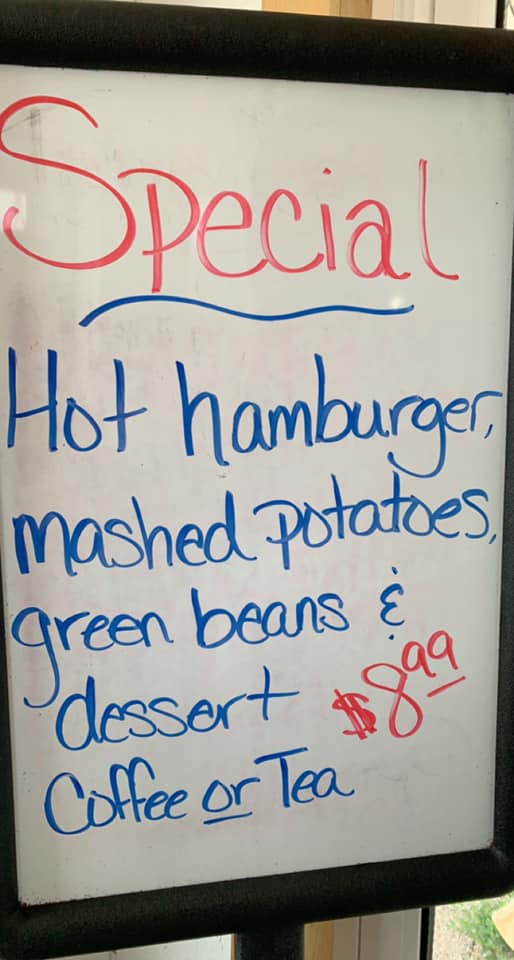 Special
Hot hamburger,
mashed potatoes,
green beans &
dessert $8.99
Coffee or Tea